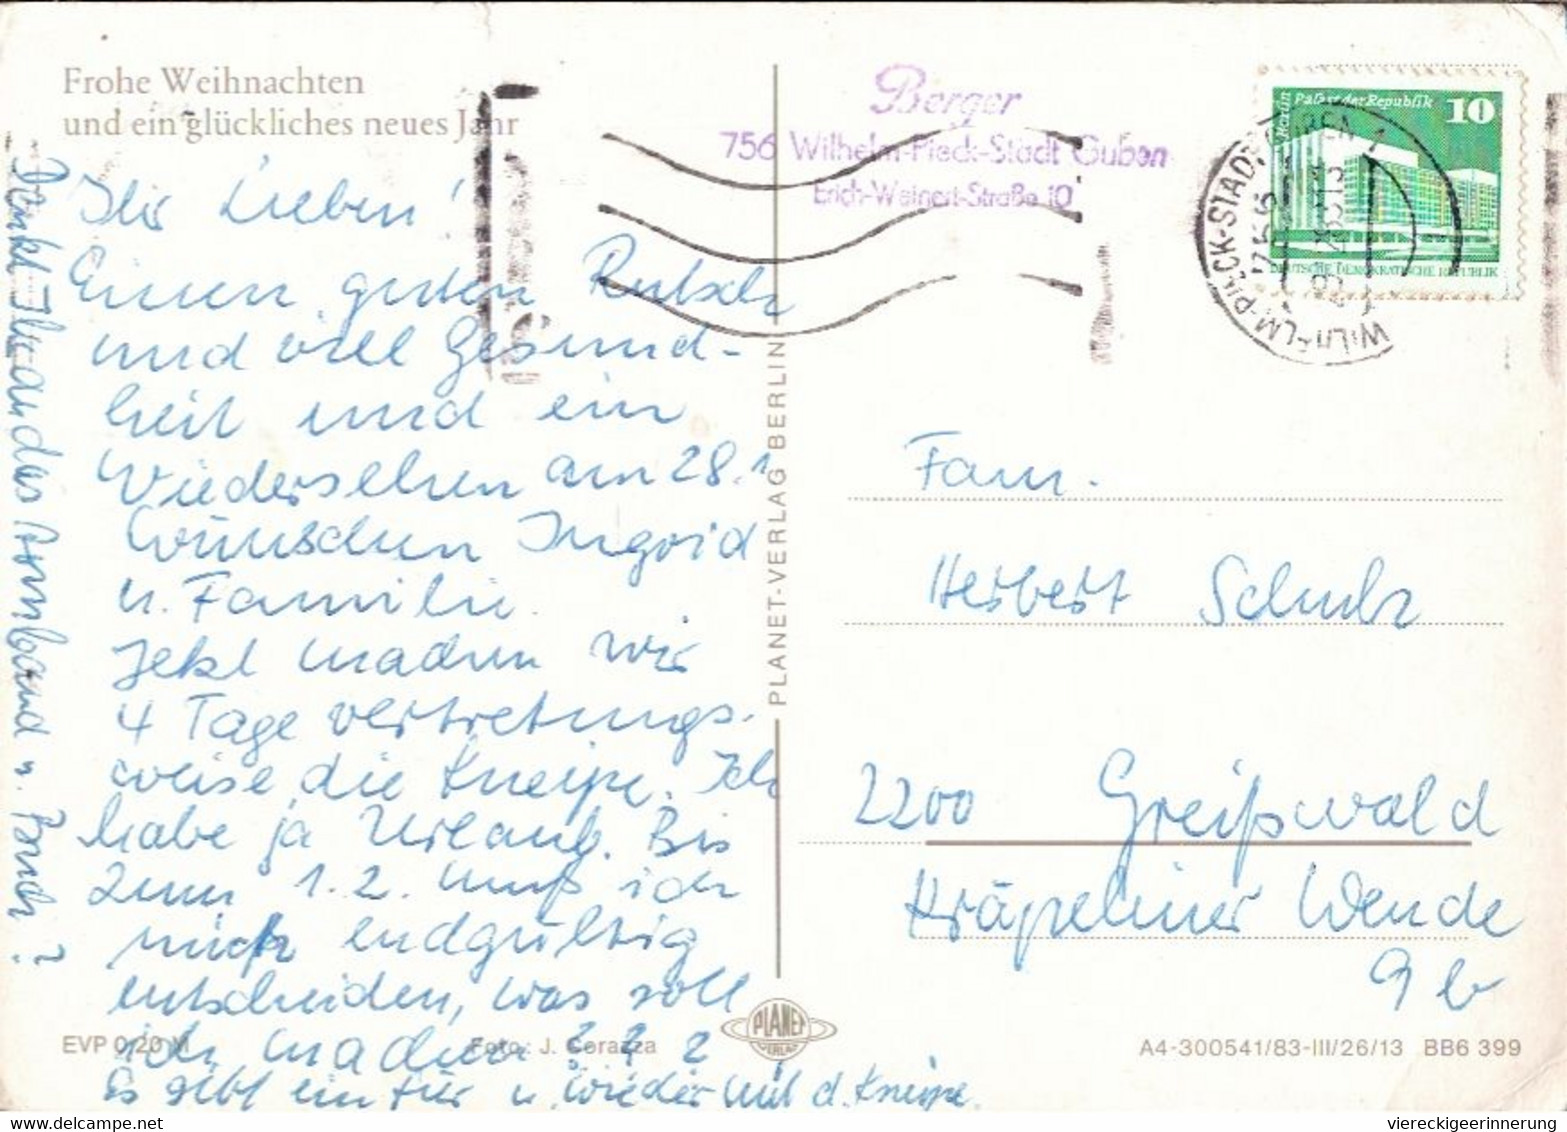 Frohe Weihnachten
und ein glückliches neues Jahr
Ihr Lieben!
Einen guten Rutsch
und viel Gesund-
heit und ein
Wiedersehen am 28.1.
wünschen Ingrid
u. Familie.
Jetzt machen wir
4 Tage vertretungs-
weise die Kneipe. Ich
habe ja Urlaub. Bis
zum 1.2. muß ich
mich endgültig
entscheiden, was soll
ich machen ? ? ?
Es gibt ein für u. wieder mit d. Kneipe.
Denkt Ihr an das Armband u. Buch?
EVP 0,20 M
Foto: J. Corazza
PLANET-VERLAG BERLIN
PLANET
VERLAG
Berger
756 Wilhelm-Pieck-Stadt Guben
Erich-Weinert-Straße 10
Berlin Palast der Republik 10
DEUTSCHE DEMOKRATISCHE REPUBLIK
WILHELM-PIECK-STADT GUBEN 1
Fam.
Herbert Schulz
2200 Greifswald
Kräpeliner Wende
9 b
A4-300541/83-III/26/13 BB6 399
viereckigeerinnerung